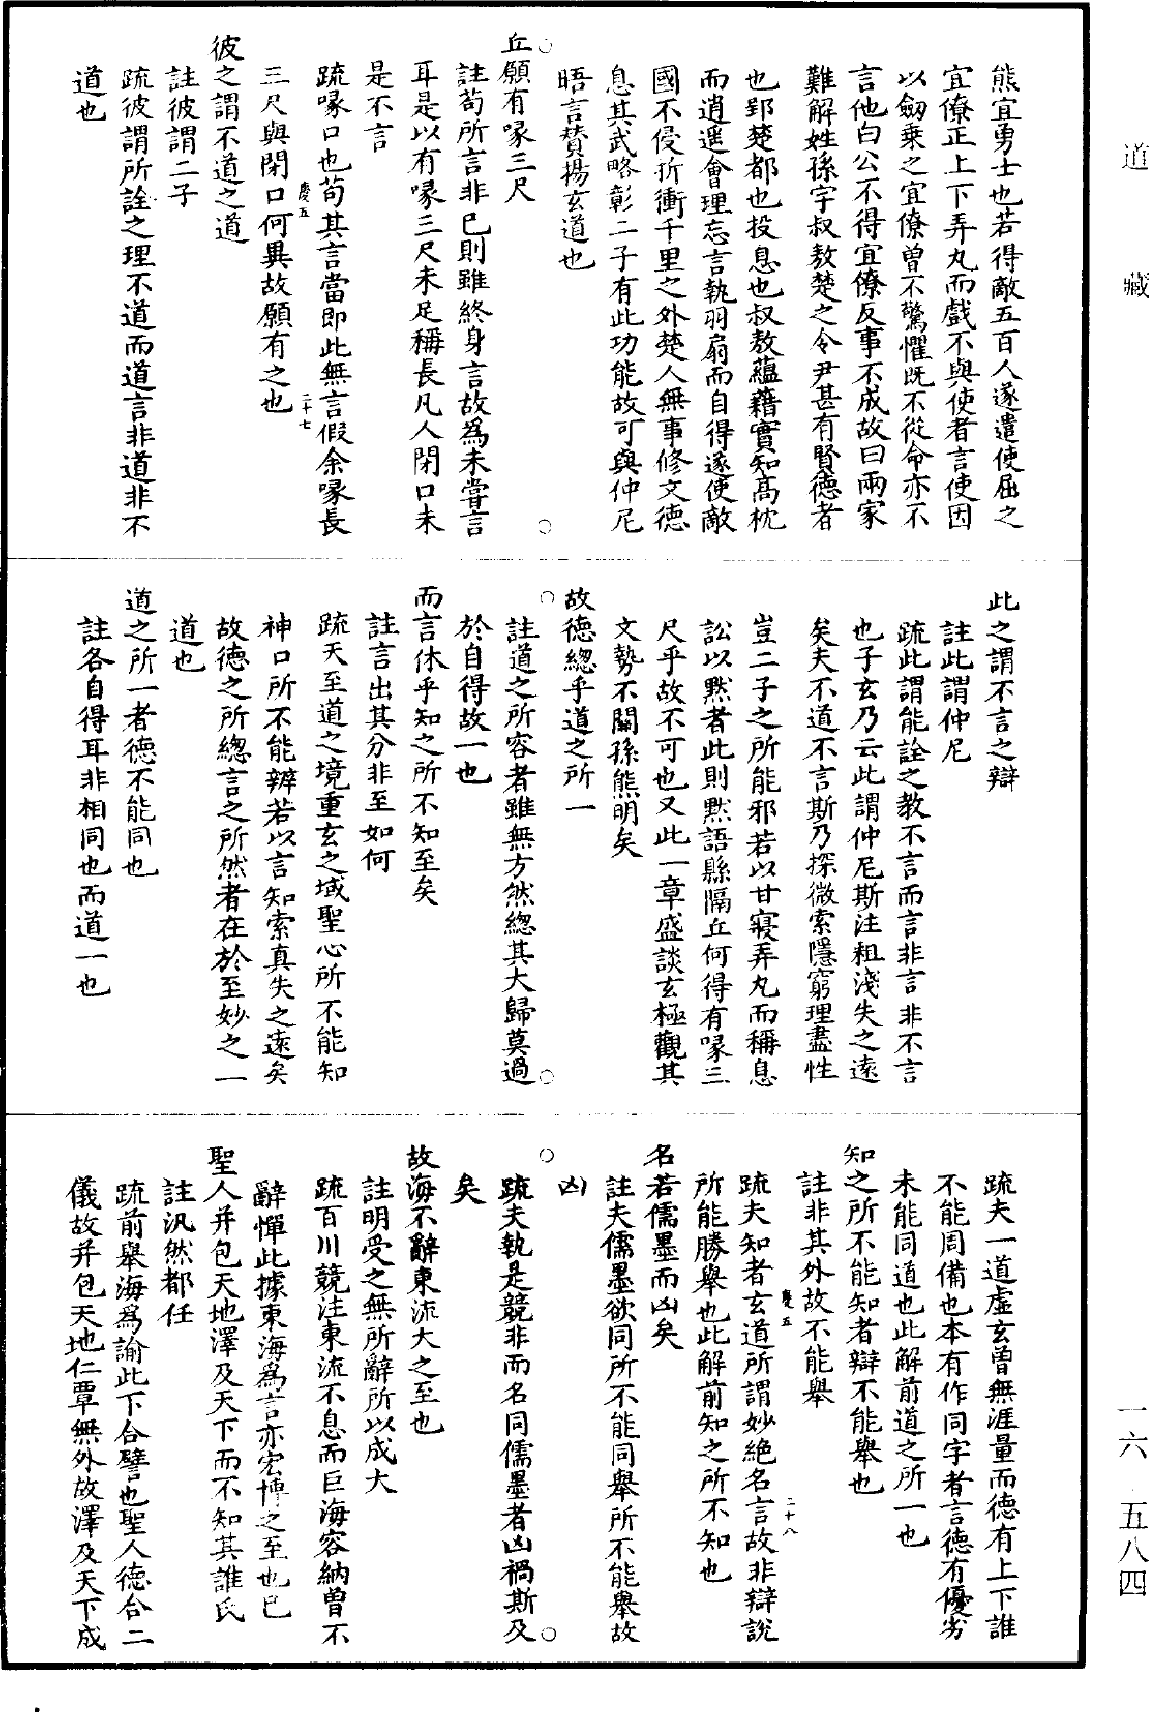 道藏
熊宜勇士也若得敵五百人遂遣使屈之
宜僚正上下弄丸而戲不與使者言使因
以劒乗之宜僚曽不驚懼既不從命亦不
言他白公不得宜僚反事不成故曰兩家
難解姓孫字叔敖楚之令尹甚有賢德者
也郢楚都也投息也叔敖蘊藉實知髙枕
而逍遥會理忘言執羽扇而自得遂使敵
國不侵折衝千里之外楚人無事修文德
息其武略彰二子有此功能故可與仲尼
晤言賛揚玄道也
丘願有喙三尺
註苟所言非已則雖終身言故為未嘗言
耳是以有喙三尺未足稱長凡人閉口未
是不言
疏喙口也苟其言當即此無言假余喙長
慶五
二十七
三尺與閉口何異故願有之也
彼之謂不道之道
註彼謂二子
疏彼謂所詮之理不道而道言非道非不
道也
此之謂不言之辯
註此謂仲尼
疏此謂能詮之教不言而言非言非不言
也子玄乃云此謂仲尼斯注粗淺失之逺
矣夫不道不言斯乃探微索隱窮理盡性
豈二子之所能邪若以甘寢弄丸而稱息
訟以黙者此則黙語縣隔丘何得有喙三
尺乎故不可也又此一章盛談玄極觀其
文勢不關孫熊明矣
故德總乎道之所一
註道之所容者雖無方然總其大歸莫過
於自得故一也
而言休乎知之所不知至矣
註言出其分非至如何
疏夫至道之境重玄之域聖心所不能知
神口所不能辨若以言知索真失之逺矣
故德之所總言之所然者在於至妙之一
道也
道之所一者德不能同也
註各自得耳非相同也而道一也
疏夫一道虛玄曽無涯量而德有上下誰
不能周備也本有作同字者言德有優劣
未能同道也此解前道之所一也
知之所不能知者辯不能舉也
註非其外故不能舉
慶五
二十八
疏夫知者玄道所謂妙絶名言故非辯說
所能勝舉也此解前知之所不知也
名若儒墨而凶矣
註夫儒墨欲同所不能同舉所不能舉故
凶
疏夫執是競非而名同儒墨者凶禍斯及
矣
故海不辭東流大之至也
註明受之無所辭所以成大
疏百川競注東流不息而巨海容納曽不
辭憚此據東海為言亦宏博之至也已
聖人并包天地澤及天下而不知其誰氏
註汎然都任
疏前舉海為諭此下合譬也聖人德合二
儀故并包天地仁覃無外故澤及天下成
一六 五八四